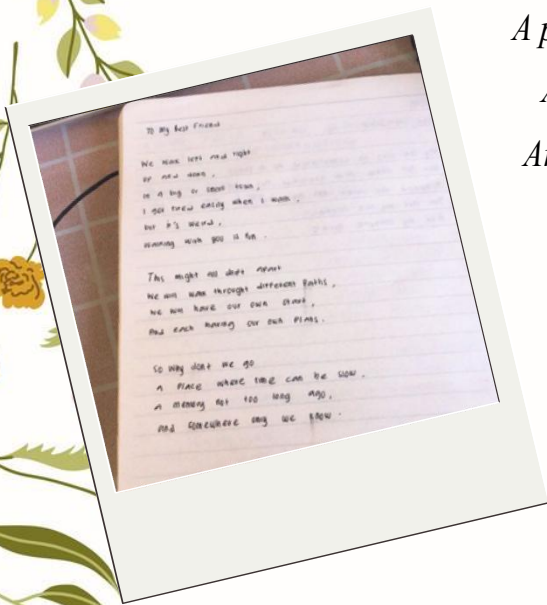 To My Best Friend
We walk left and right
Up and down,
In a big or small town,
I get tired easily when I walk.
but it's weird,
walking with you is fun.
This might all drift apart
We will walk throught different Paths,
We will have our own start,
And each having our own Plans.
So why dont we go
A Place where time can be slow.
A memory not too long ago,
And somewhere only we know.
A p
A